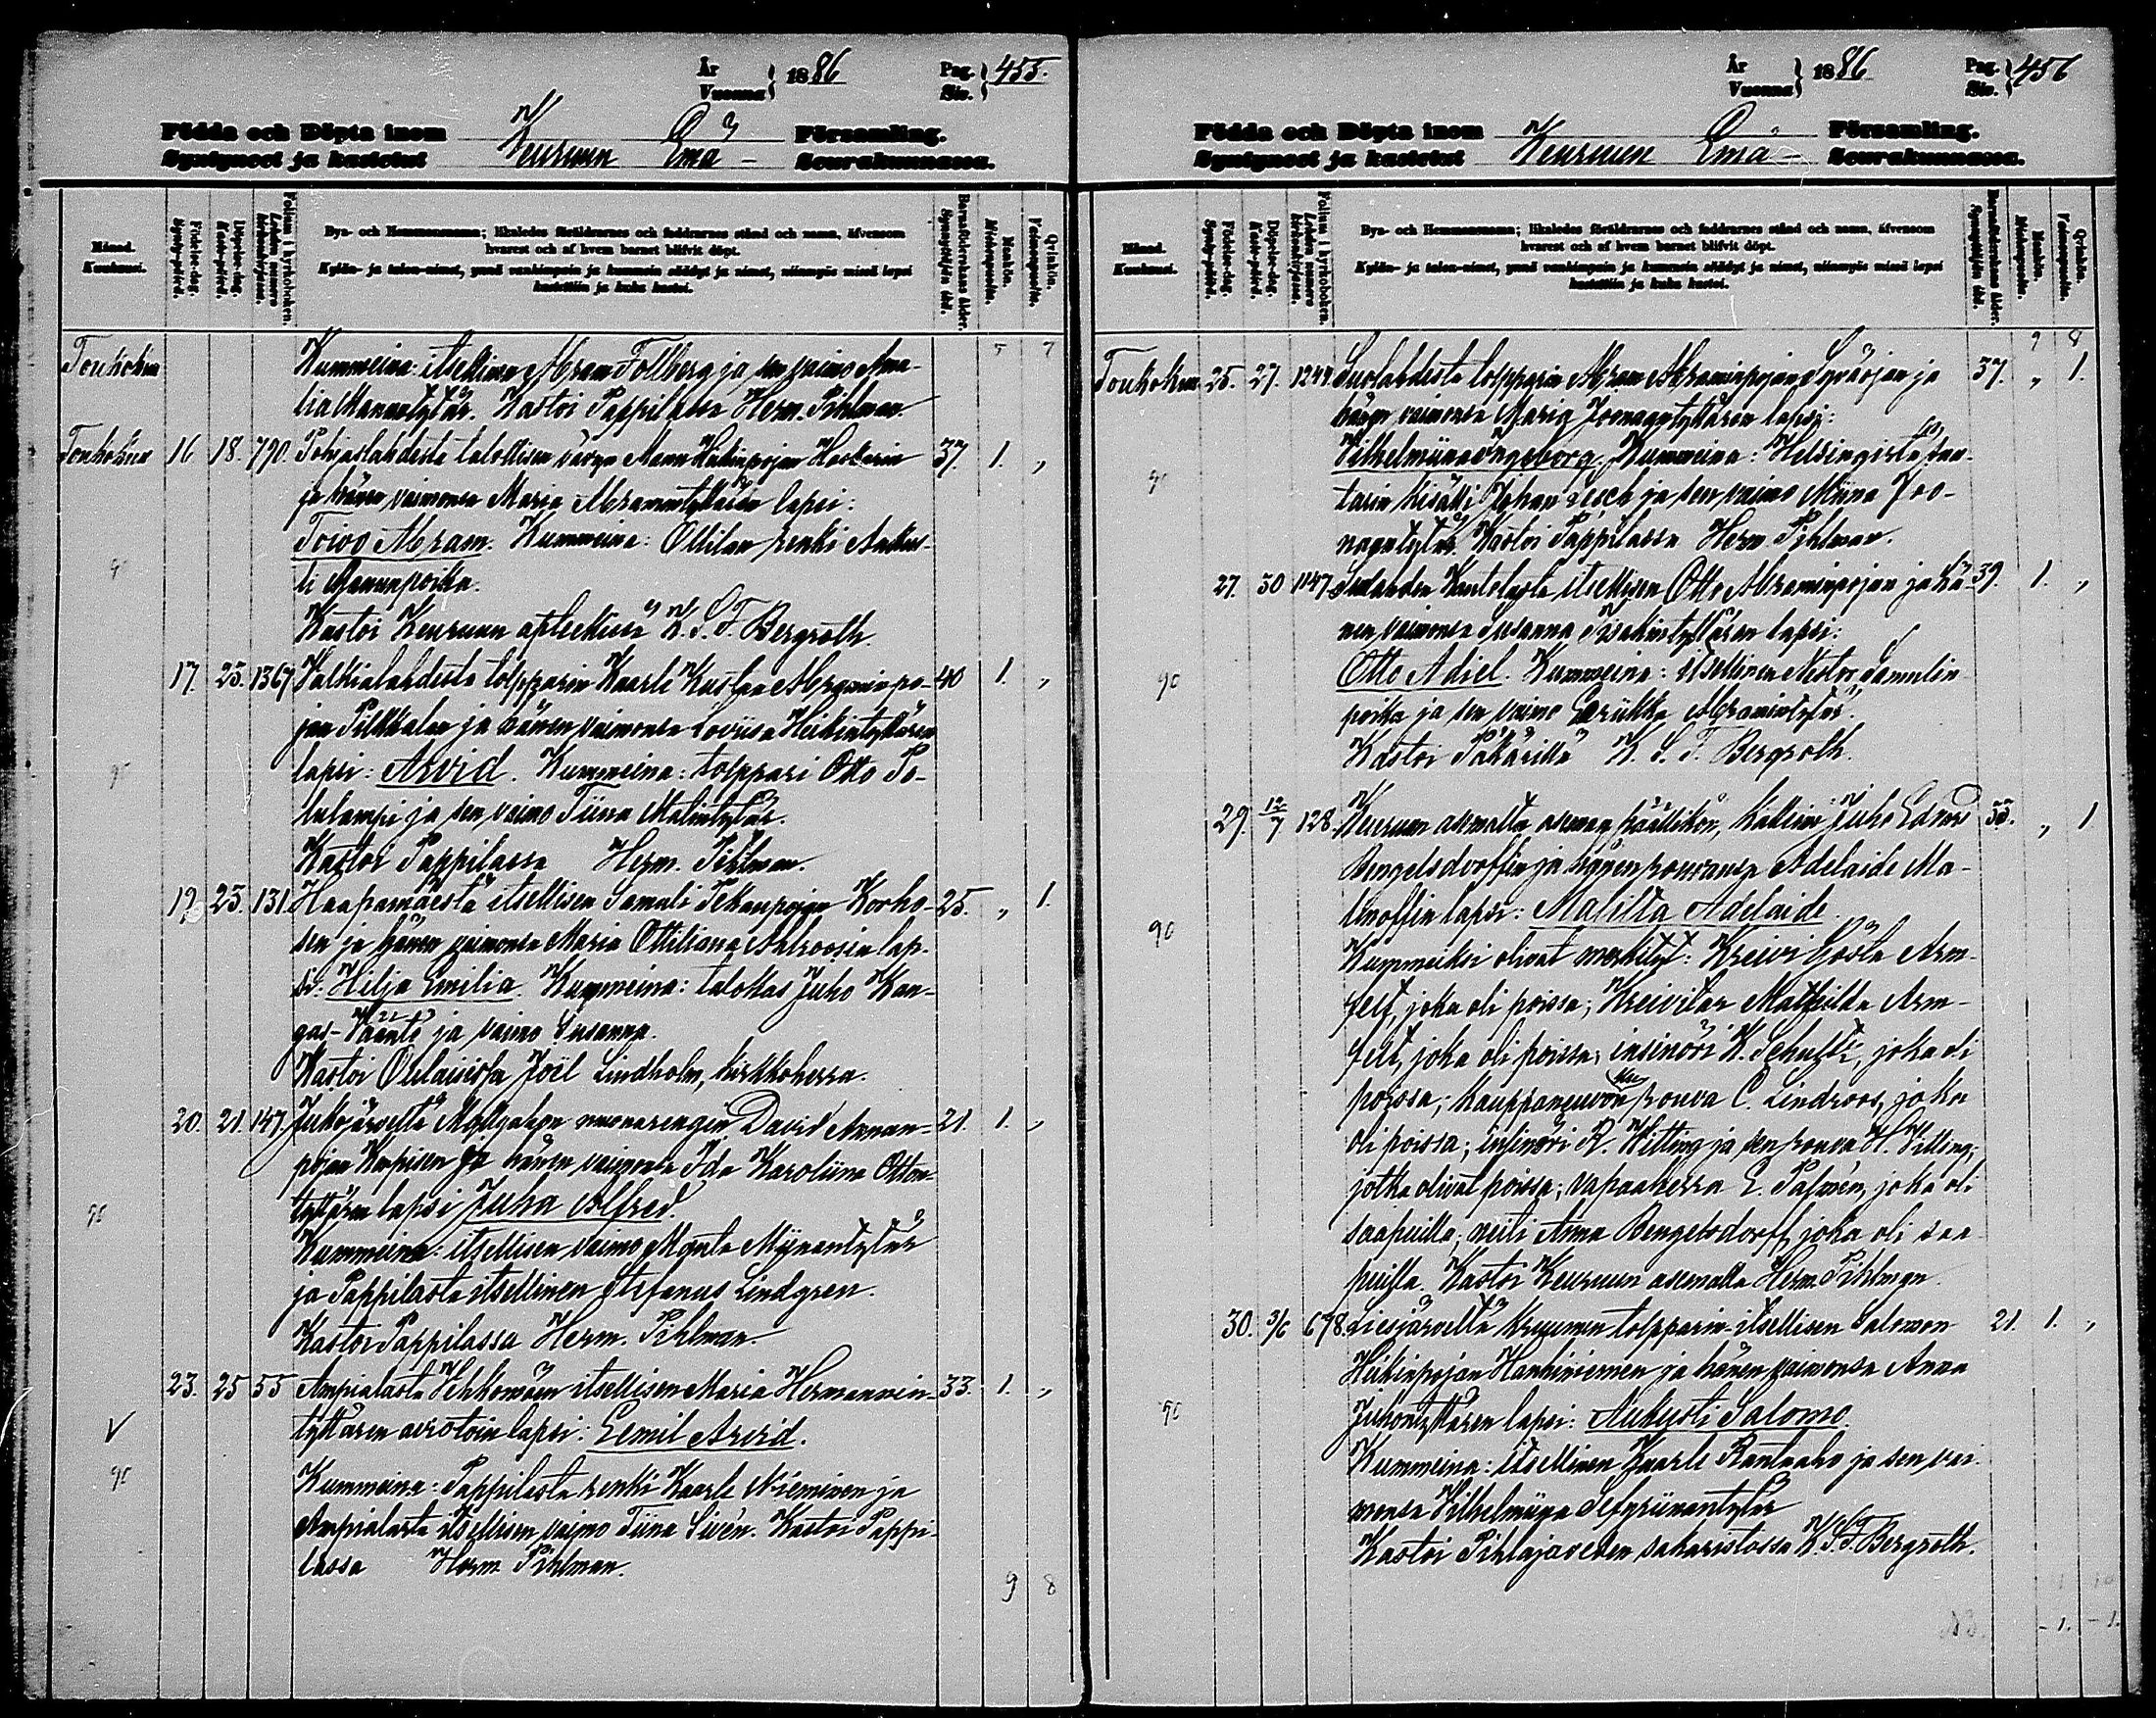 År
Vuonna } 1886
Pag.
Siv. } 455.
Födda och Döpta inom Keuruun Emä- Församling.
Syntyneet ja kastetut Seurakunnassa.
Månad.
Kuukausi.
Födelse-dag.
Synty-päivä.
Döpelse-dag.
Kaste-päivä.
Folium i kyrkoboken.
Lehden numero kirkonkirjassa.
Bya- och Hemmansnamn; likaledes föräldrarnes och faddrarnes stånd och namn, äfvensom
hvarest och af hvem barnet blifvit döpt.
Kylän- ja talon-nimet, ynnä vanhimpain ja kummein säädyt ja nimet, niinmyös missä lapsi
kastettiin ja kuka kastoi.
Barnaföderskans ålder.
Synnyttäjän ikä.
Mankön.
Miehenpuolta.
Qvinkön.
Vaimonpuolta.
5 7
Toukokuu Kummeina: itsellinen Abram Follberg ja sen vaimo Ama-
lia Mannuntytär. Kastoi Pappilassa Herm. Pihlman.
Toukokuu 16 18. 790. Pohjaslahdesta talollisen vävyn Manu Heikinpojan 37. 1. „
ja hänen vaimonsa Maria Abramintyttären lapsi:
Toivo Abram. Kummeina: Ottilan renki Aukus-
90 ti Manunpoika.
Kastoi Keuruun K. S. F. Bergroth.
17. 23. 1367 Valkialahdesta torpparin Kaarle Kustaa Abraminpo- 40 1. „
jan ja hänen vaimonsa Loviisa Heikintyttären
90 lapsi: Arvid. Kummeina: torppari Otto Po-
lulampi ja sen vaimo Tiina Matintytär.
Kastoi Pappilassa Herm. Pihlman.
19 23. 131. Haapamäestä itsellisen Samuli Korho- 25. „ 1.
sen ja hänen vaimonsa Maria Ottiliana Ahlroosin lap-
si: Hilja Emilia. Kummeina: talokas Juho Kan-
gas- ja vaimo Susanna.
Kastoi Joël Lindholm, kirkkoherra.
20. 21. 147. Jukojärveltä muonarengin David Annan- 21. 1. „
pojan ja hänen vaimonsa Ida Karoliina Otton-
90 tyttären lapsi Juha Alfred.
Kummeina: itsellisen vaimo
ja Pappilasta itsellinen Stefanus Lindgren.
Kastoi Pappilassa Herm. Pihlman.
23. 25 55 Ampialasta itsellisen Maria Hermannin- 33. 1. „
V tyttären aviotoin lapsi: Eemil Arvid.
90 Kummeina: Pappilasta renki Kaarle Nieminen ja
Ampialasta itsellisen vaimo Tiina Sivén. Kastoi Pappi-
lassa Herm. Pihlman.
9 8
År
Vuonna } 1886
Pag.
Siv. } 456
Födda och Döpta inom Keuruun Emä- Församling.
Syntyneet ja kastetut Seurakunnassa.
Månad.
Kuukausi.
Födelse-dag.
Synty-päivä.
Döpelse-dag.
Kaste-päivä.
Folium i kyrkoboken.
Lehden numero kirkonkirjassa.
Bya- och Hemmansnamn; likaledes föräldrarnes och faddrarnes stånd och namn, äfvensom
hvarest och af hvem barnet blifvit döpt.
Kylän- ja talon-nimet, ynnä vanhimpain ja kummein säädyt ja nimet, niinmyös missä lapsi
kastettiin ja kuka kastoi.
Barnaföderskans ålder.
Synnyttäjän ikä.
Mankön.
Miehenpuolta.
Qvinkön.
Vaimonpuolta.
9 8
Toukokuu 25. 27. 1244. Suolahdesta torpparin Abram Abraminpojan Syväojan ja 37. „ 1.
hänen vaimonsa Maria Joonaantyttären lapsi:
90 Vilhelmiina Ingeborg. Kummeina: Helsingistä
kisälli Johan Lesch ja sen vaimo Miina Joo-
nagatytär. Kastoi Pappilassa Herm. Pihlman.
27. 30 1147. itsellisen Otto Abraminpojan ja hä- 39. 1. „
nen vaimonsa Susanna Iisakintyttären lapsi:
90 Otto Adiel. Kummeina: itsellinen Nestor Samulin-
poika ja sen vaimo Eriikka Abramintytär.
Kastoi K. S. F. Bergroth.
29. 12/7 128. Keuruun asemalta aseman päällikön, Juho Edvard 33. „ 1
Bengelsdorffin ja hänen rouvansa Adelaide Ma-
90 linoffin lapsi: Matilda Adelaide.
Kummeiksi olivat merkityt: Kreivi Gösta Arm-
felt, joka oli poissa; Kreivitär Mathilda Arm-
felt, joka oli poissa; insinöri K. Schultz, joka oli
poissa; Kauppaneuvoksen rouva C. Lindroos, joka
oli poissa; insinöri R. Hitting ja sen rouva H. Hitting,
jotka olivat poissa; vapaaherra E. Palmén, joka oli
saapuilla; neiti Anna Bengelsdorff, joka oli saa-
puilla. Kastoi Keuruun asemalla Herm. Pihlman.
30. 3/6 698. Liesjärveltä Kruunun torpparin itsellisen Salomon 21. 1. „
Heikinpojan Hankiniemen ja hänen vaimonsa Anna
90 Juhontyttären lapsi: Aukusti Salomo.
Kummeina: itsellinen Kaarle Rantaaho ja sen vai-
monsa Vilhelmiina Sefyriinantytär
Kastoi Pihlajaveden sakaristossa K. S. F. Bergroth.
- 1. - 1.